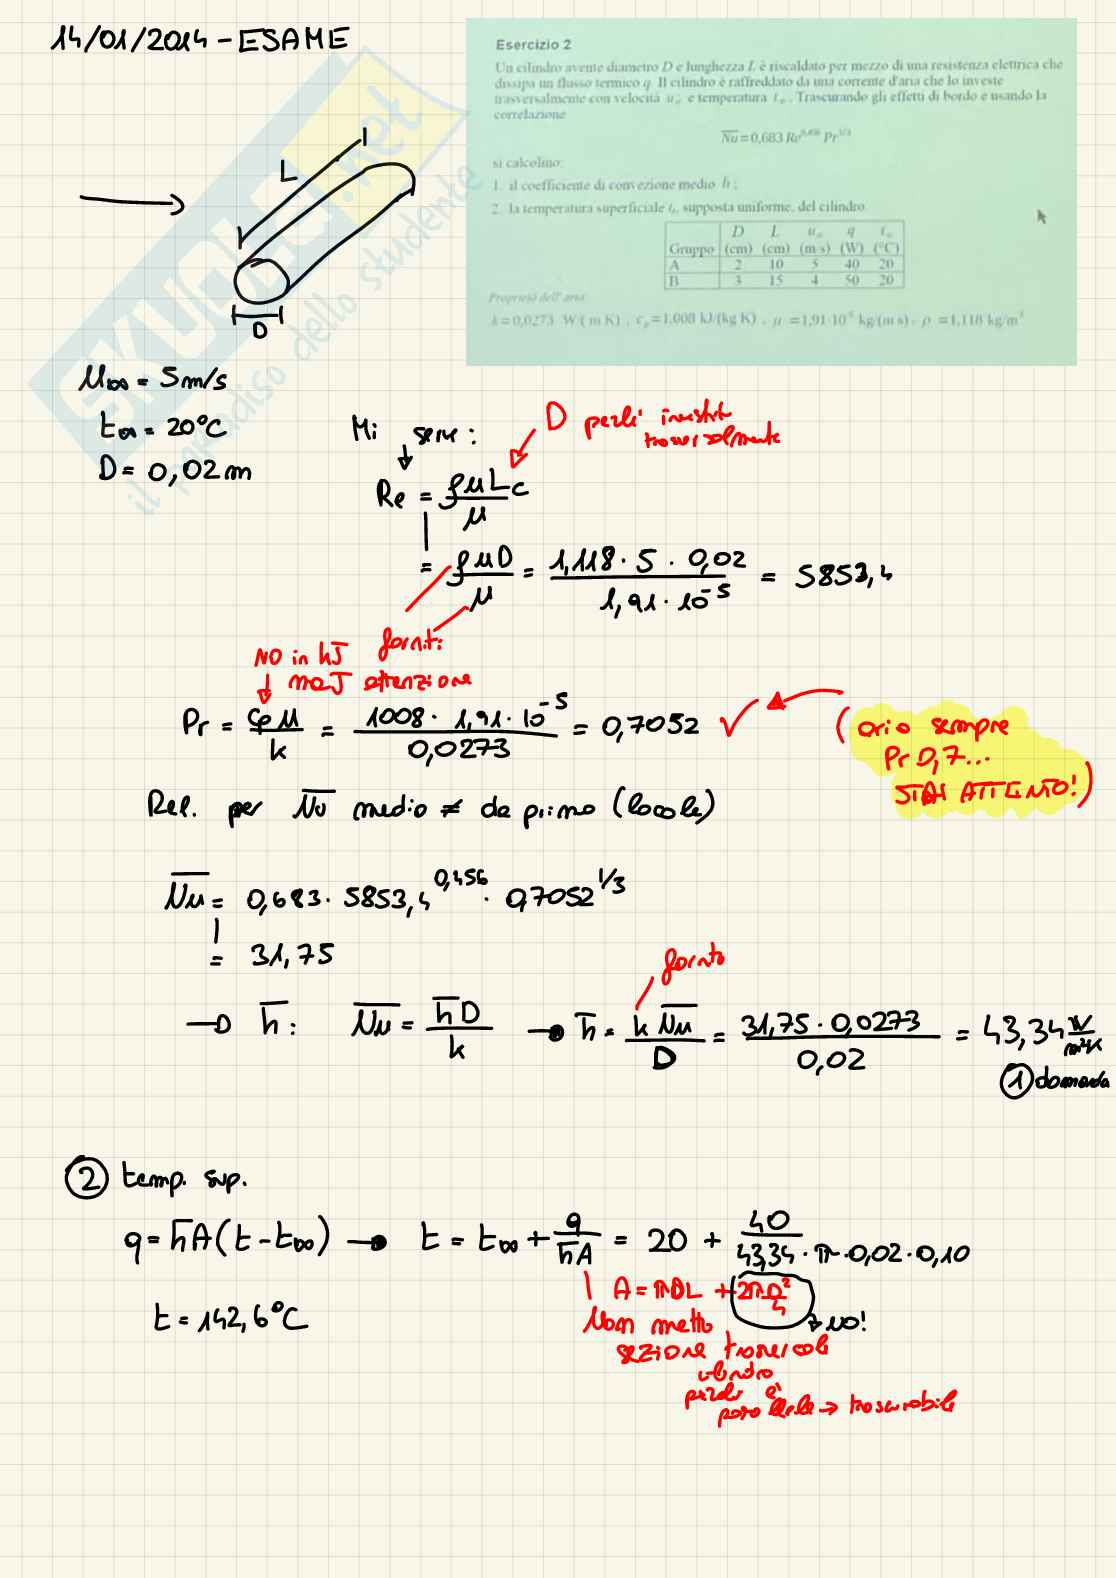 14/01/2014 - ESAME
Esercizio 2
Un cilindro avente diametro D e lunghezza L è riscaldato per mezzo di una resistenza elettrica che
dissipa un flusso termico q. Il cilindro è raffreddato da una corrente d'aria che lo investe
trasversalmente con velocità u∞ e temperatura t∞. Trascurando gli effetti di bordo e usando la
correlazione
N̅u̅ = 0,683 Re^0,456 Pr^1/3
si calcolino:
1. il coefficiente di convezione medio h̅;
2. la temperatura superficiale t, supposta uniforme, del cilindro.
D L u∞ q t∞
Gruppo (cm) (cm) (m/s) (W) (°C)
A 2 10 5 40 20
B 3 15 4 50 20
Proprietà dell'aria:
k=0,0273 W/(m K), cp=1,008 kJ/(kg K), μ=1,91·10^-5 kg/(m s), ρ=1,118 kg/m³
SKUOLA.net
il paradiso dello studente
L
D
u∞ = 5 m/s
t∞ = 20°C
D = 0,02 m
Mi serve:
D perché investito
trasversalmente
Re = ρuLc/μ
= ρuD/μ = 1,118 · 5 · 0,02 / 1,91 · 10^-5 = 5853,4
forniti
NO in kJ
ma J attenzione
Pr = cpμ/k = 1008 · 1,91 · 10^-5 / 0,0273 = 0,7052 ✓
(aria sempre
Pr 0,7...
STAI ATTENTO!)
Rel. per N̅u̅ medio ≠ da primo (locale)
N̅u̅ = 0,683 · 5853,4^0,456 · 0,7052^1/3
= 31,75
fornito
→ h̅: N̅u̅ = h̅D/k → h̅ = k N̅u̅/D = 31,75 · 0,0273 / 0,02 = 43,34 W/m²K
① domanda
② temp. sup.
q = h̅A(t - t∞) → t = t∞ + q/h̅A = 20 + 40 / 43,34 · π · 0,02 · 0,10
A = πDL + 2πD²/4
t = 142,6°C
Non metto → NO!
sezione trasversale
cilindro
perché è
parallela → trascurabile